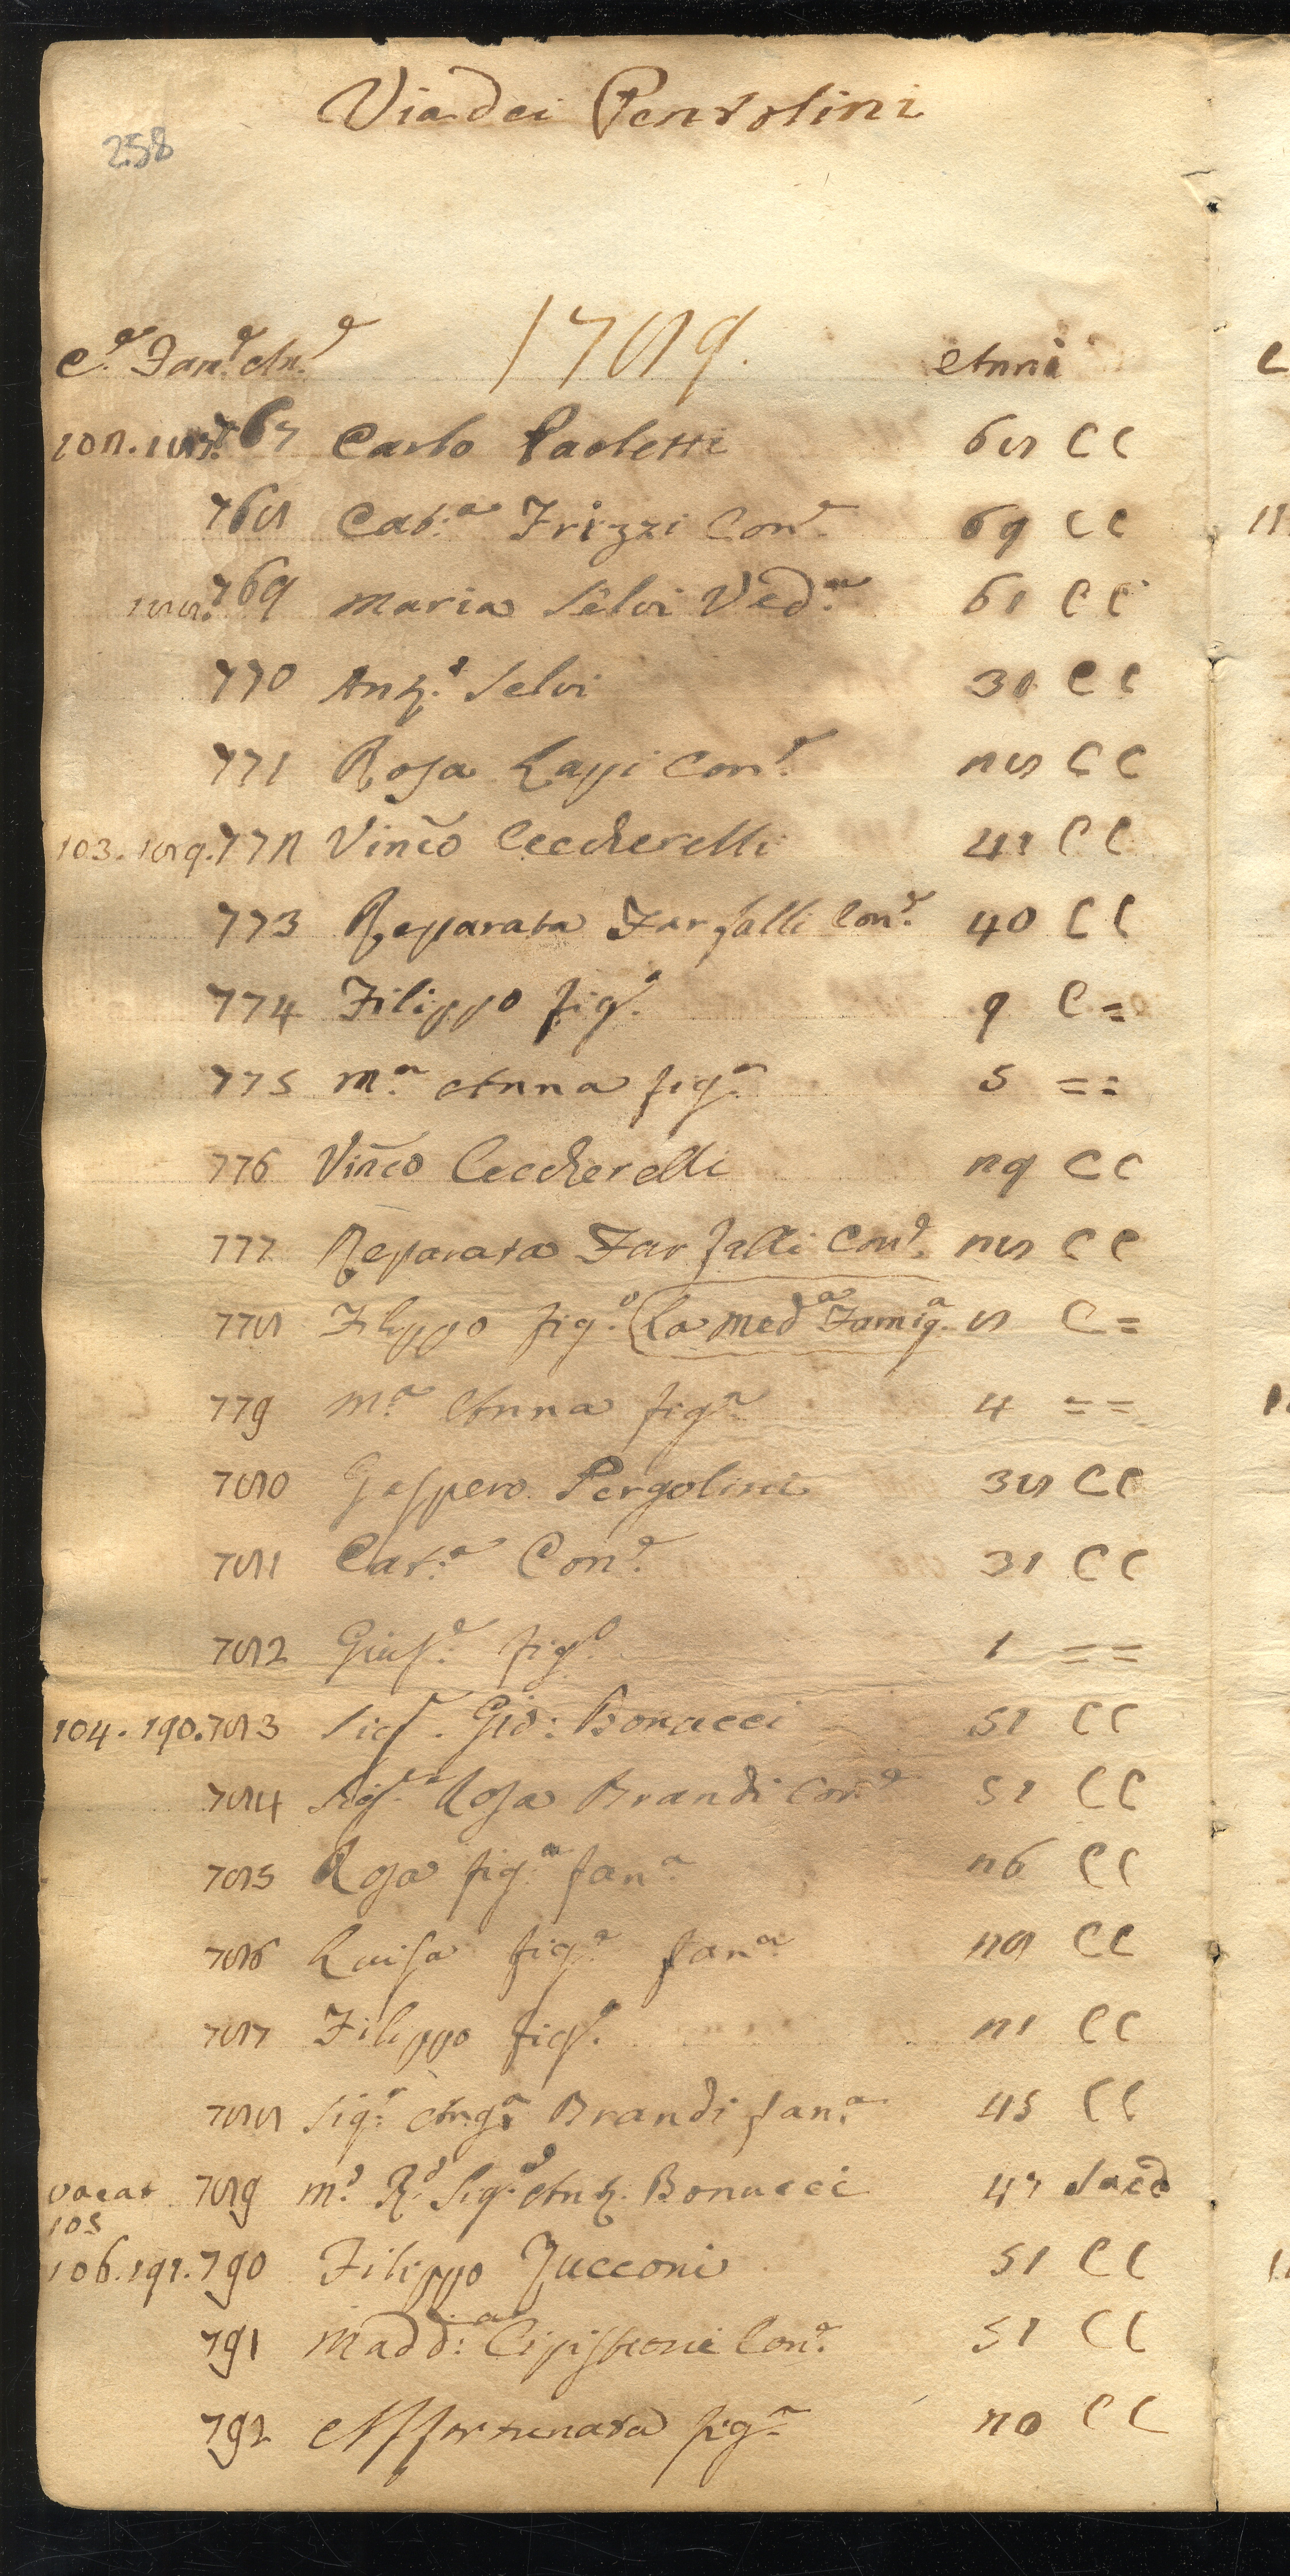 258
Via dei Pentolini
C.e Fam.e An.e 1789. Anni
102. 187. 767 Carlo Paoletti 68 C C
768 Cat.a Frizzi Con.e 69 C C
188. 769 Maria Selvi Ved.a 61 C C
770 Ant.o Selvi 30 C C
771 Rosa Lapi Con.e 28 C C
103. 189. 772 Vinc̃o Ceccherelli 41 C C
773 Reparata Farfalli Con.e 40 C C
774 Filippo fig.o 9 C =
775 M.a Anna fig.a 5 = =
776 Vinc̃o Ceccherelli 29 C C
777 Reparata Farfalli Con.e 28 C C
778 Filippo fig.o (La Med.a Famig.a 8 C =
779 M.a Anna fig.a 4 = =
780 Gaspero Pergolini 38 C C
781 Cat.a Con.e 31 C C
782 Gius.e fig.o 1 = =
104. 190. 783 Sig.r Gio: Bonucci 51 C C
784 Sig.ra Rosa Brandi Con.e 51 C C
785 Rosa fig.a fan.a 26 C C
786 Luisa fig.a fan.a 28 C C
787 Filippo fig.o 21 C C
788 Sig.ra Ang.a Brandi fan.a 45 C C
vacat 789 M.o R.o Sig.e Ant.o Bonucci 47 Sacd
105
106. 191. 790 Filippo Zucconi 51 C C
791 Madd:a Cipistroni Con.e 51 C C
792 Affortunata fig.a 20 C C